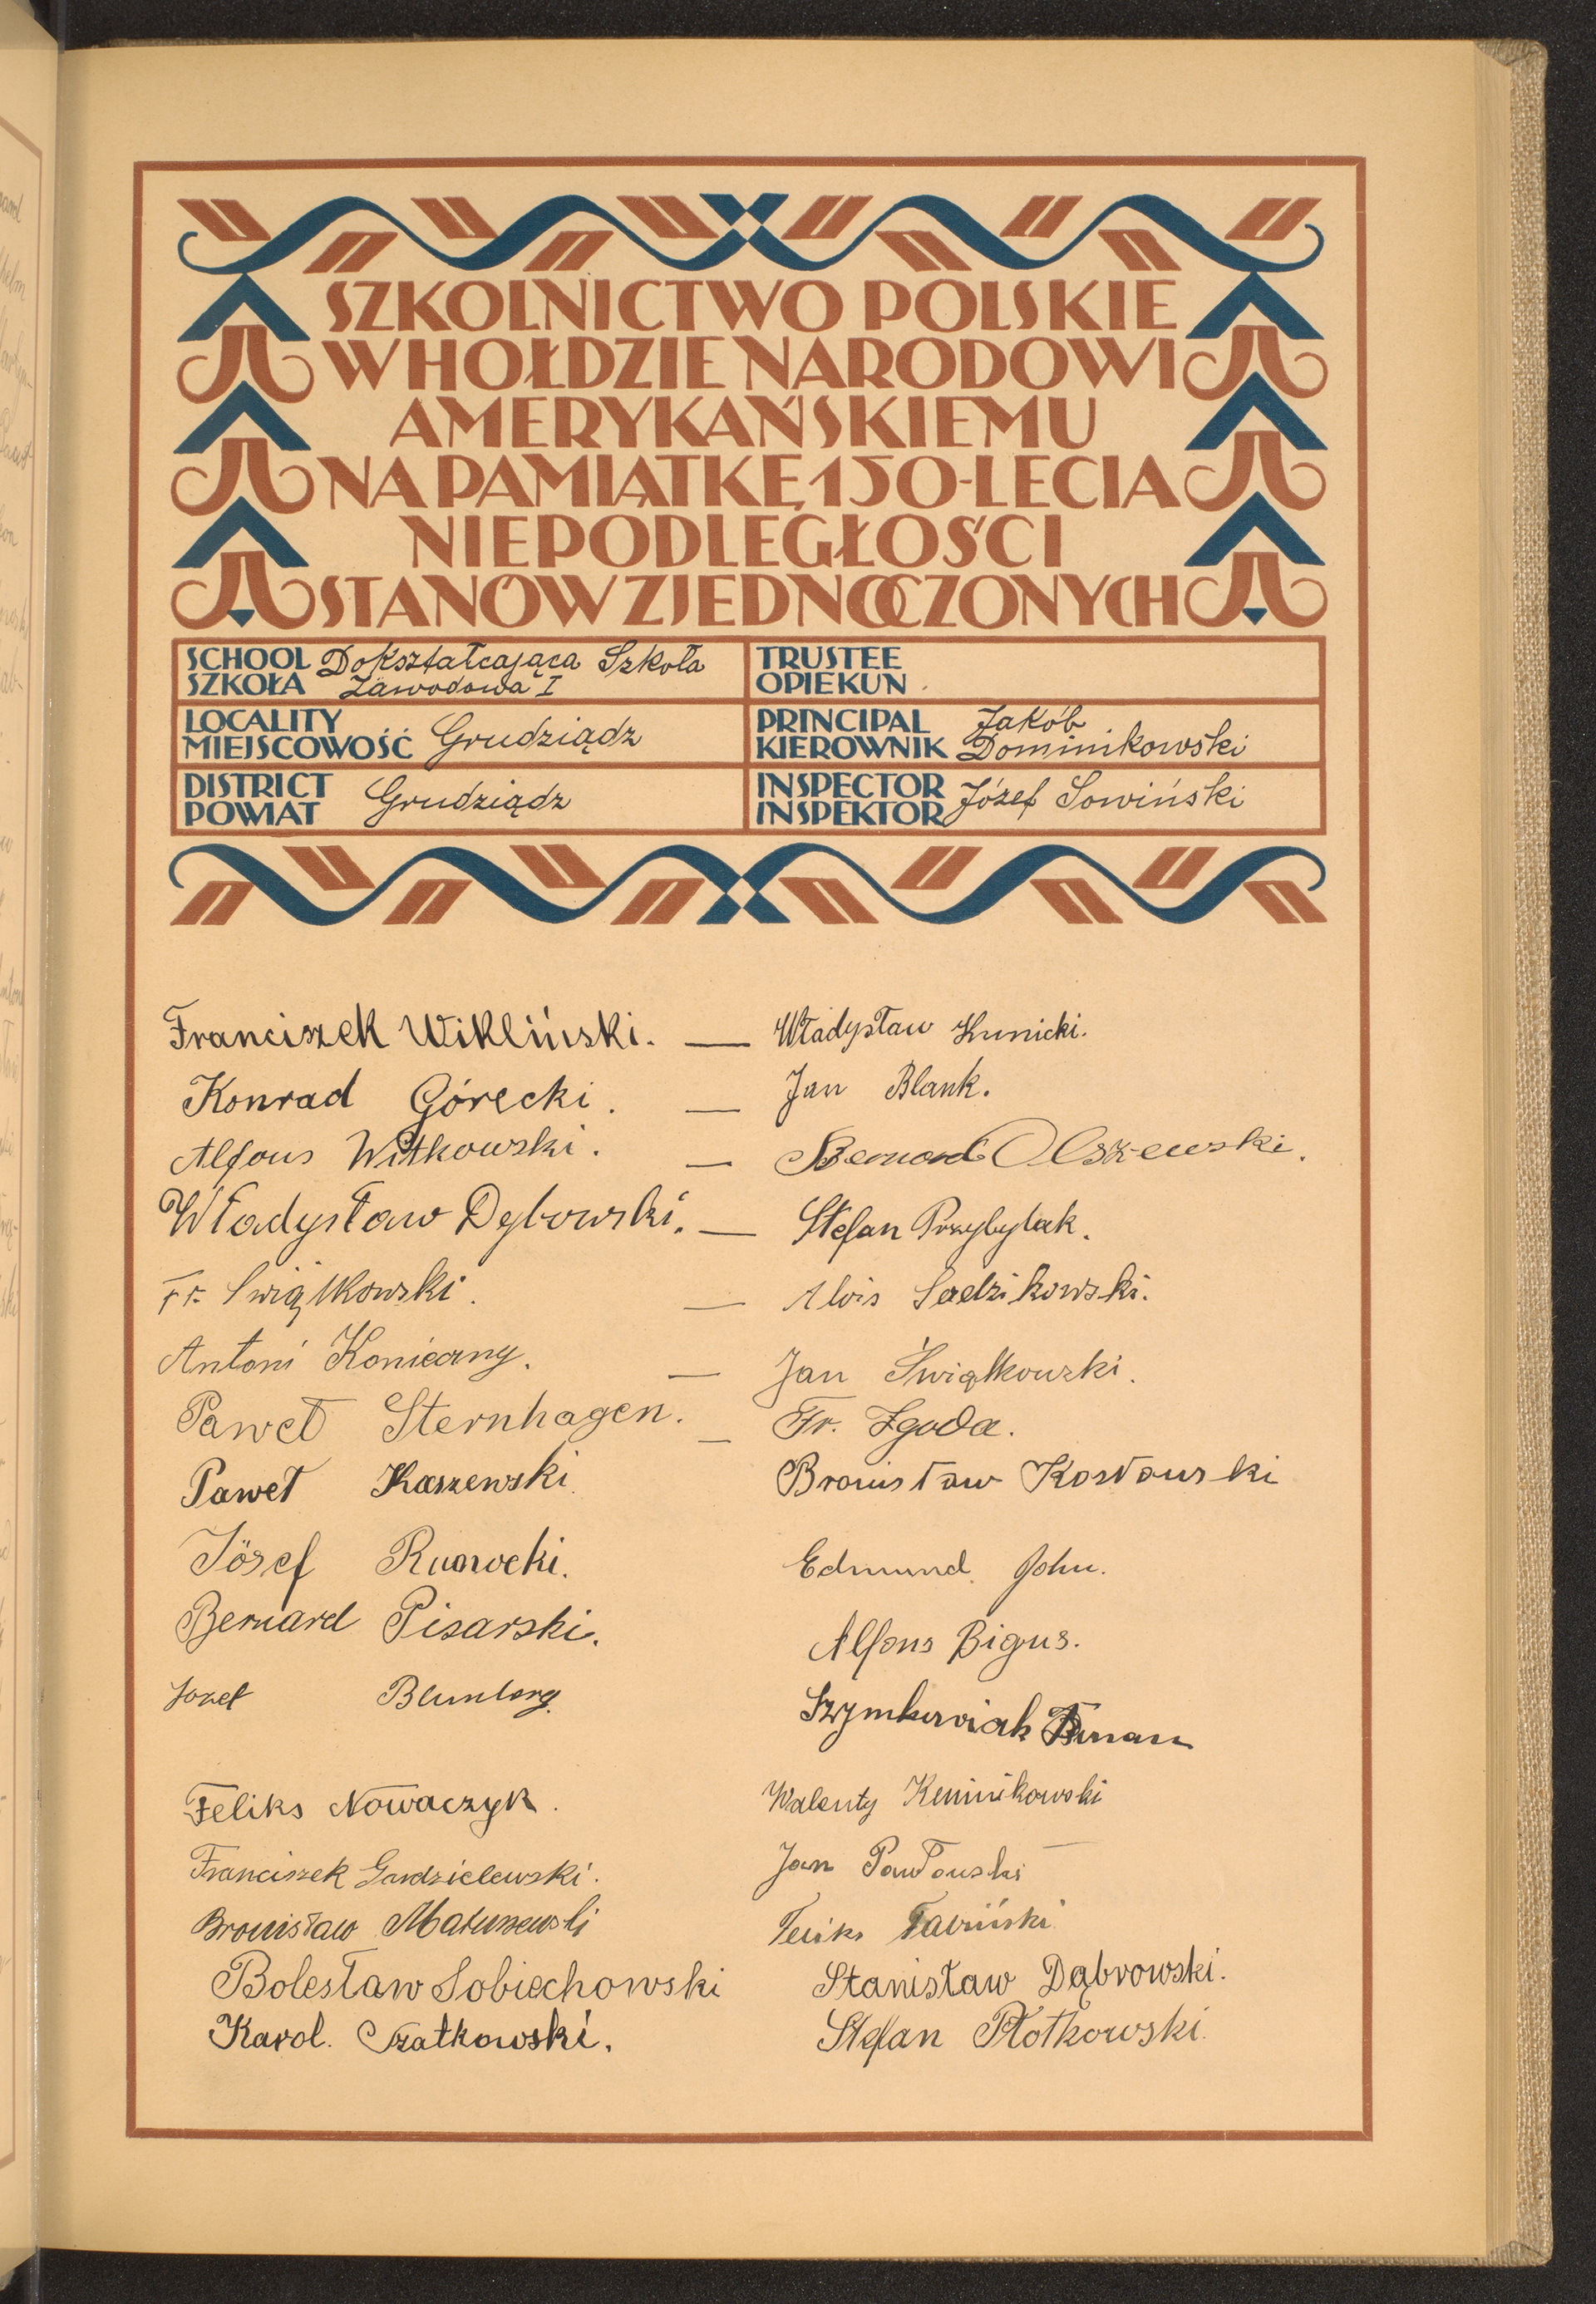 SZKOLNICTWO POLSKIE
W HOŁDZIE NARODOWI
AMERYKAŃSKIEMU
NA PAMIĄTKĘ 150-LECIA
NIEPODLEGŁOŚCI
STANÓW ZJEDNOCZONYCH
SCHOOL SZKOŁA Dokształcająca Szkoła Zawodowa I
TRUSTEE OPIEKUN
LOCALITY MIEJSCOWOŚĆ Grudziądz
PRINCIPAL KIEROWNIK Jakób Dominikowski
DISTRICT POWIAT Grudziądz
INSPECTOR INSPEKTOR Józef Sowiński
Franciszek Wikliński. — Władysław Kunicki.
Konrad Górecki. — Jan Blank.
Alfons Witkowski. — Bernard Olszewski.
Władysław Dębowski. — Stefan Przybylak.
Fr. Swiątkowski. — Alois Sadzikowski.
Antoni Konieczny. — Jan Świątkowski.
Paweł Sternhagen. — Fr. Zgoda.
Paweł Kaszewski. Bronisław Kosłowski
Józef
Edmund John.
Bernard Pisarski.
Alfons Bigus.
Józef Blumberg.
Szymkowiak
Feliks Nowaczyk.
Walenty
Franciszek Gardzielewski.
Jan Pawłowski
Bronisław Matuszewski
Feliks
Bolesław Sobiechowski
Stanisław Dąbrowski.
Karol. Szatkowski.
Stefan Płotkowski.